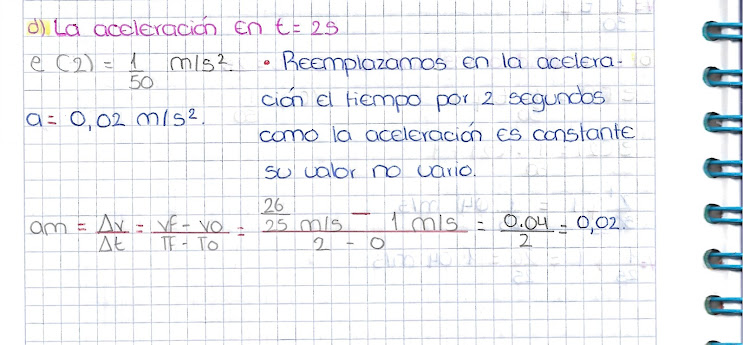 d) La aceleración en t= 2s
e (2) = 1/50 m/s². • Reemplazamos en la acelera-
ción el tiempo por 2 segundos
a= 0,02 m/s².
como la aceleración es constante
su valor no vario.
am = Δv/Δt = vf - vo/Tf - To = 26/25 m/s - 1 m/s / 2 - 0 = 0.04/2 = 0,02.